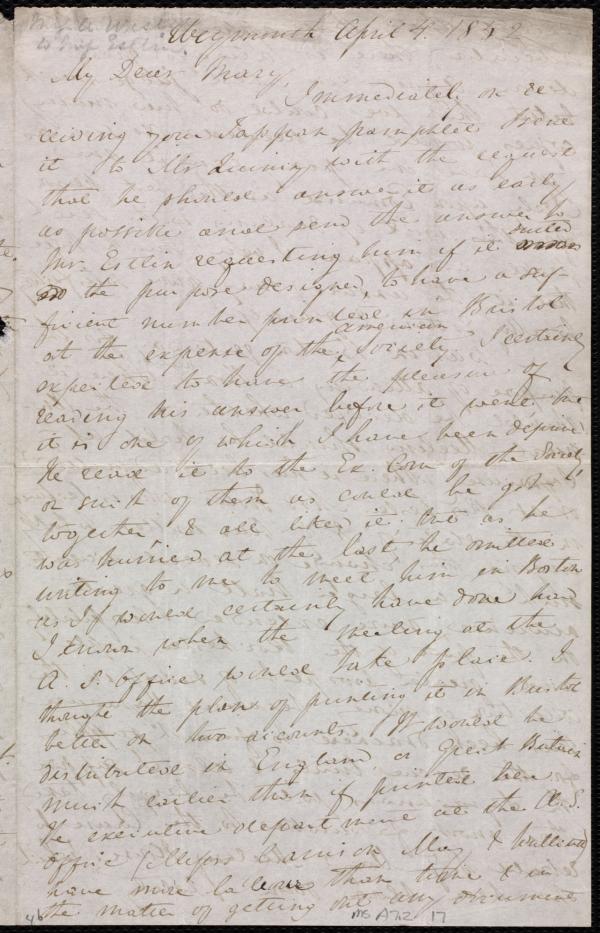 Weymouth April 4. 1852
My Dear Mary,
Immediately on re
ceiving your Tappan pamphlet I sent
it to Mr Quincy with the request
that he should answer it as early
as possible and send the answer to
Mr. Estlin requesting him if it suited
the purpose designed, to have a suf-
ficient number printed in Bristol
at the expense of the American Society I certainly
expected to have the pleasure of
reading his answer before it went, but
it is one of which I have been deprived
He read it to the Ex. Com of the Society
or such of them as could be got
together & all liked it. But as he
was hurried at the last, he omitted
writing to me to meet him in Boston
as I would certainly have done had
I known when the meeting at the
A. S. Office would take place. I
thought the plan of printing it in Bristol
better on two accounts. It would be
distributed in England or Great Britain
much earlier than if printed here
The executive department at the A. S.
office (Messrs Garrison May & Wallcut)
have more labour than time & in
the matter of getting out any document
46
MS A.7.2. 17